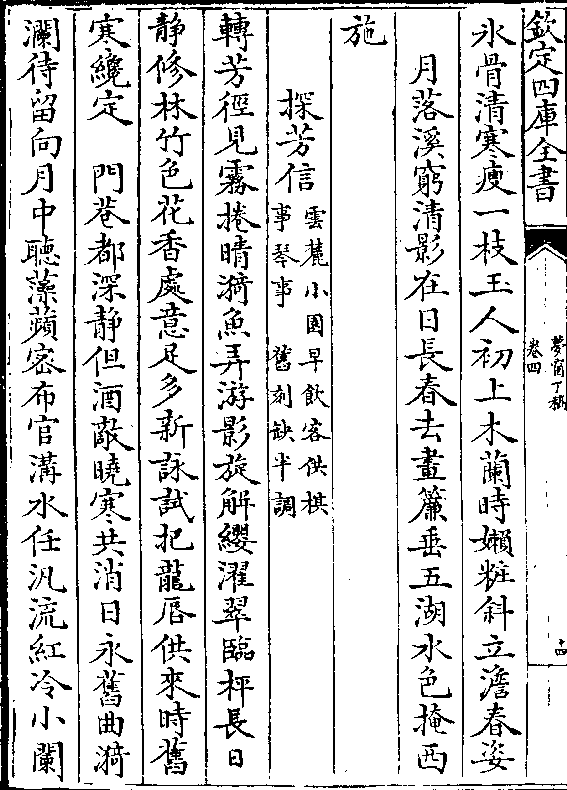 欽定四庫全書
夢窗丁稿
卷四
十四
氷骨清寒瘦一枝玉人初上木蘭時嬾粧斜立澹春姿
月落溪窮清影在日長春去畫簾垂五湖水色掩西
施
探芳信雲麓小園早飲客供棋
事琴事 舊刻缺半調
轉芳徑見霧捲晴漪魚弄游影旋解纓濯翠臨枰長日
静修林竹色花香處意足多新詠試把龍唇供來時舊
寒纔定 門巷都深静但酒敵曉寒共消日永舊曲漪
瀾待留向月中聽藻蘋密布官溝水任汎流紅冷小闌